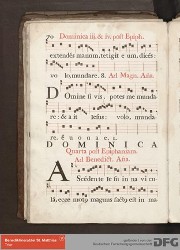 70 Dominica iii. & iv. post Epiph.
extendés manum, tetigit e um, dicés:
vo lo, mundare. 8. Ad Magn. Ana.
Domine si vis, potes me munda
re: & a it Iesus: volo, munda
re. E u o u a e.
DOMINICA
Quarta post Epiphaniam.
Ad Benedict. Ana.
Ascédente Ie su in na vi cu
lá, ecce motus magnus factus est in ma
Benediktinerabtei St. Matthias
DFG